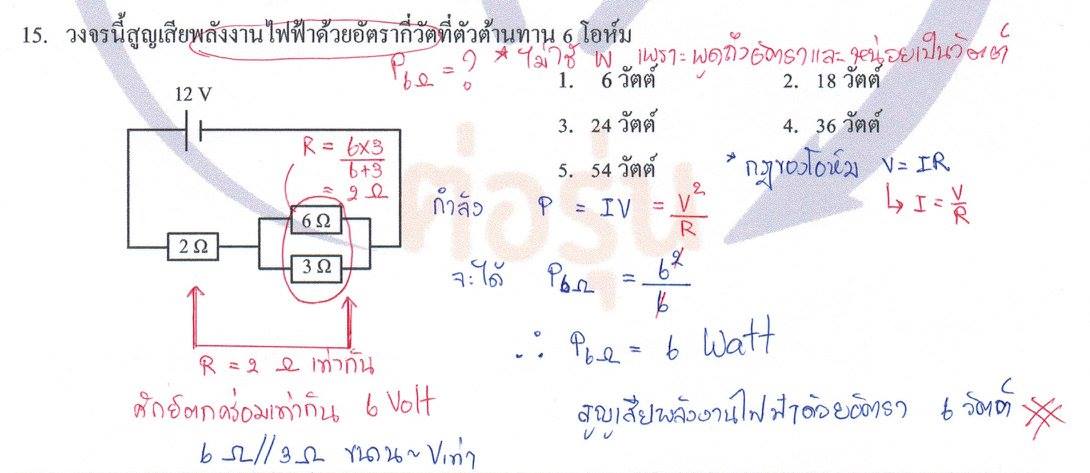 15. วงจรนี้สูญเสียพลังงานไฟฟ้าด้วยอัตรากี่วัตที่ตัวต้านทาน 6 โอห์ม
P6Ω = ? * ไม่ใช้ W เพราะพูดถึงอัตราและหน่วยเป็นวัตต์
1. 6 วัตต์ 2. 18 วัตต์
12 V
3. 24 วัตต์ 4. 36 วัตต์
R = 6×3/6+3
= 2 Ω
5. 54 วัตต์
* กฎของโอห์ม V = IR
↳ I = V/R
กำลัง P = IV = V²/R
6 Ω
2 Ω
3 Ω
จะได้ P6Ω = 6²/6
∴ P6Ω = 6 Watt
R = 2 Ω เท่ากัน
ศักย์ตกคร่อมเท่ากัน 6 Volt
สูญเสียพลังงานไฟฟ้าด้วยอัตรา 6 วัตต์
6 Ω//3 Ω ขนาน ~ Vเท่า
ต่อรุ่น